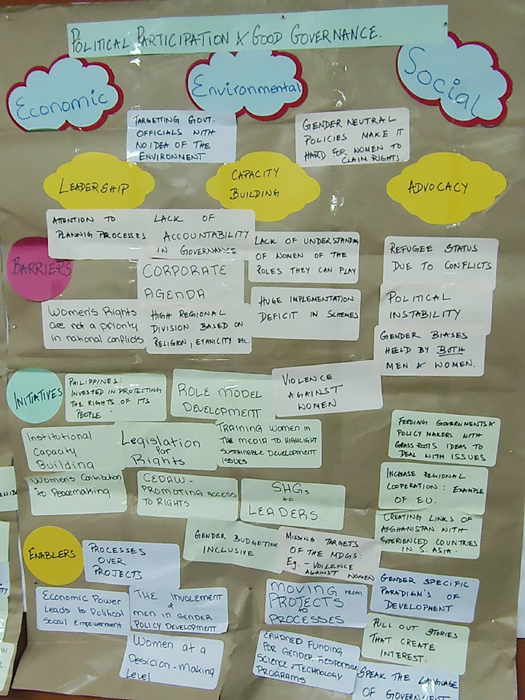 POLITICAL PARTICIPATION & GOOD GOVERNANCE.
Economic
Environmental
Social
TARGETING GOVT.
OFFICIALS WITH
NO IDEA OF THE
ENVIRONMENT
GENDER NEUTRAL
POLICIES MAKE IT
HARD FOR WOMEN TO
CLAIM RIGHTS
LEADERSHIP
CAPACITY
BUILDING
ADVOCACY
BARRIERS
ATTENTION TO
PLANNIG PROCESSES
LACK OF
ACCOUNTABILITY
IN GOVERNANCE
LACK OF UNDERSTANDING
OF WOMEN OF THE
ROLES THEY CAN PLAY
REFUGEE STATUS
DUE TO CONFLICTS
CORPORATE
AGENDA
HUGE IMPLEMENTATION
DEFICIT IN SCHEMES
POLITICAL
INSTABILITY
Women's Rights
are not a priority
in national conflicts
HIGH REGIONAL
DIVISION BASED ON
RELIGION, ETHNICITY etc.
GENDER BIASES
HELD BY BOTH
MEN & WOMEN.
INITIATIVES
PHILIPPINES:
INVESTED IN PROTECTING
THE RIGHTS OF ITS
PEOPLE
ROLE MODEL
DEVELOPMENT
VIOLENCE
AGAINST
WOMEN
Institutional
Capacity
Building
Legislation
for
Rights
TRAINING WOMEN IN
THE MEDIA TO HIGHLIGHT
SUSTAINABLE DEVELOPMENT
ISSUES
FEEDING GOVERNMENTS &
POLICY MAKERS WITH
GRASSROOTS IDEAS TO
DEAL WITH ISSUES
Women's Contribution
to Peacemaking
CEDAW -
PROMOTING ACCESS
TO RIGHTS
SHGs
to
LEADERS
INCREASE REGIONAL
COOPERATION: EXAMPLE
OF EU.
CREATING LINKS OF
AFGHANISTAN WITH
EXPERIENCED COUNTRIES
IN S. ASIA.
GENDER BUDGETING
INCLUSIVE
MISSING TARGETS
OF THE MDGs:
Eg - VOILENCE
AGAINST WOMEN
ENABLERS
PROCESSES
OVER
PROJECTS
GENDER SPECIFIC
PARADIGM'S OF
DEVELOPMENT
Economic Power
Leads to Political
Social Empowerment
THE INVOLEMENT
of
MEN IN GENDER
POLICY DEVELOPMENT
MOVING FROM
PROJECTS
to
PROCESSES
PULL OUT STORIES
THAT CREATE
INTEREST.
Women at a
Decision-Making
Level
FUNDING
FOR GENDER RESPONSIVE
SCIENCE/TECHNOLOGY
PROGRAMS
SPEAK THE LANGUAGE
OF GOVERNMENT